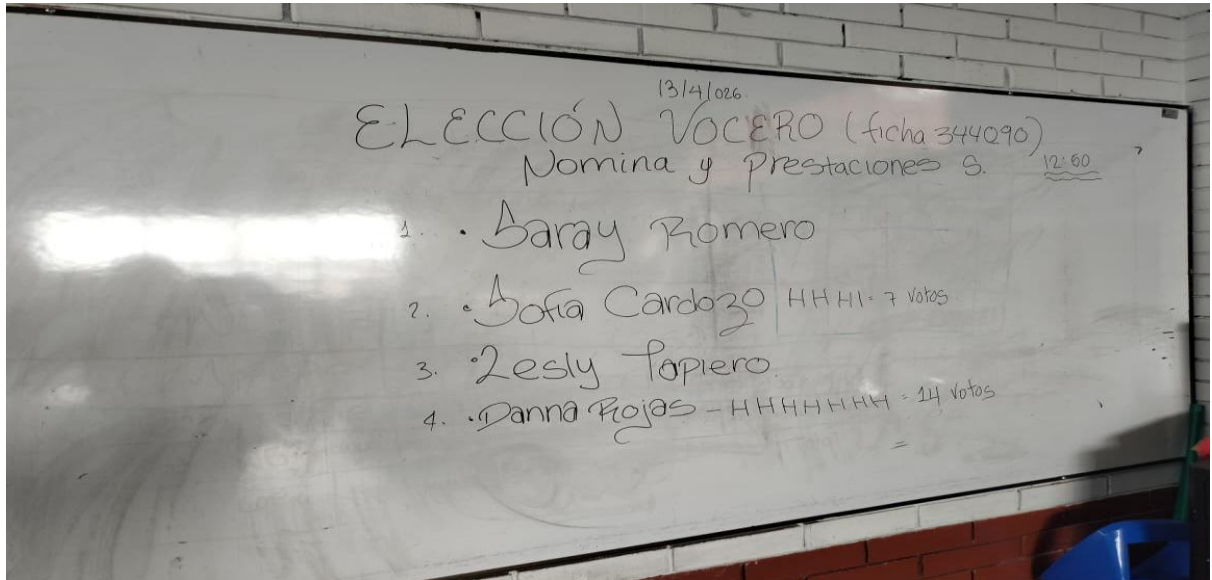 13/4/026.
ELECCIÓN VOCERO (ficha 344090)
Nomina y Prestaciones S. 12:50
1. . Saray Romero
2. . Sofía Cardozo HHHI = 7 votos
3. . Lesly Tapiero.
4. . Danna Rojas - HHHHHHH = 14 votos
=